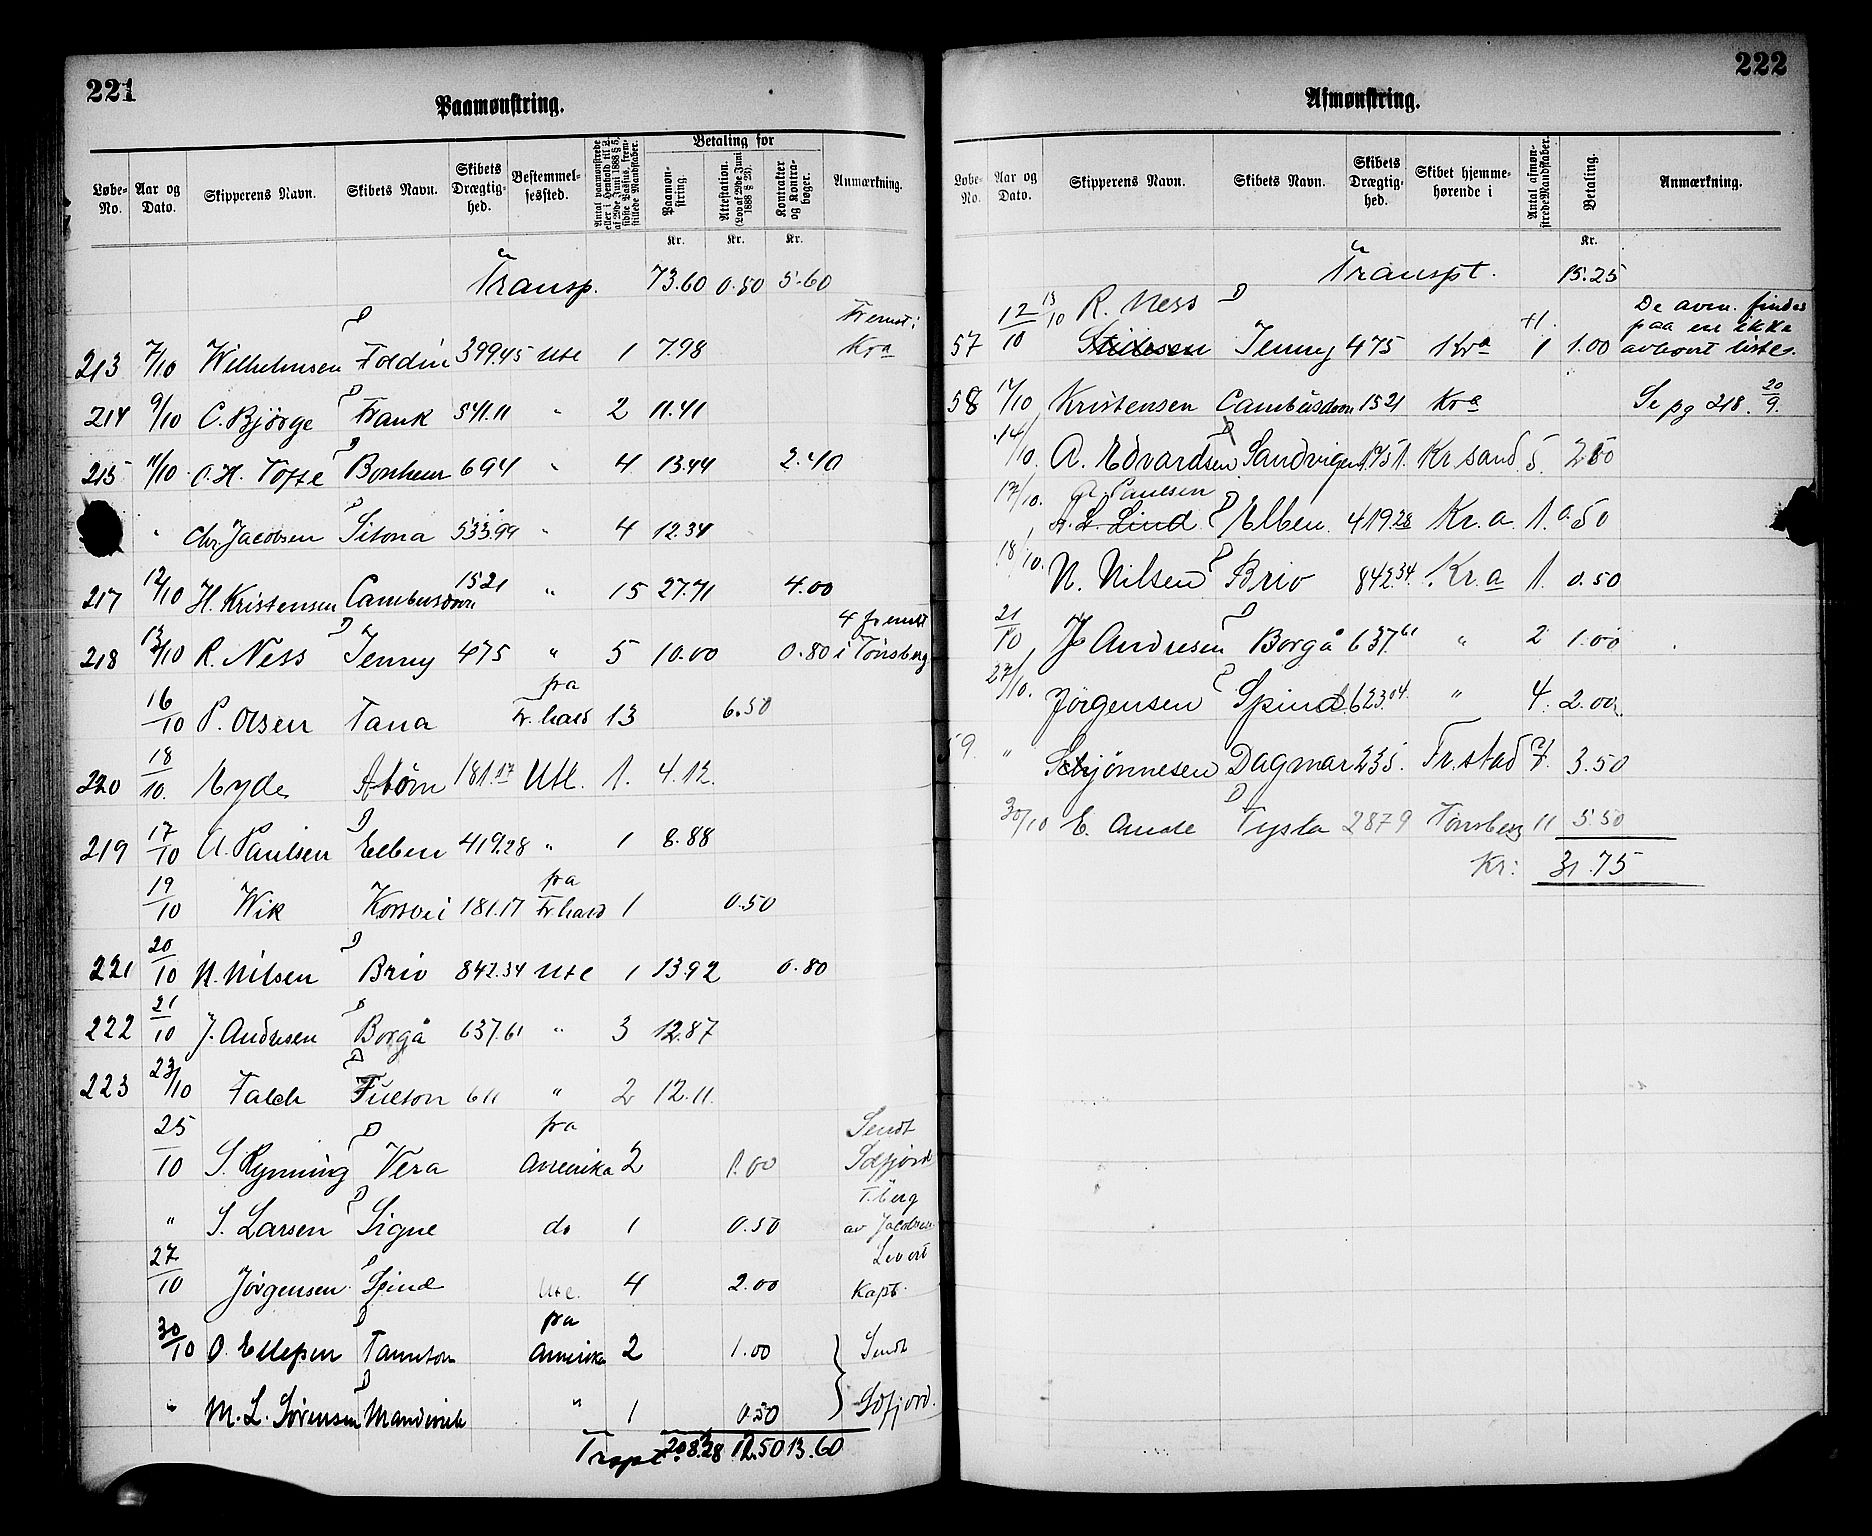 221
Paamønstring.
Løbe-No. Aar og Dato. Skipperens Navn. Skibets Navn. Skibets Drægtighed. Bestemmelsessted. Antal paamønstrede eller i Henhold til L. af 29de Juni 1888 § 5, sidste Passus, fremstillede Mandskaber. Betaling for Paamønstring. Attestation. (Lov af 29de Juni 1888 § 23). Kontrakter og Kontrabøger. Anmærkning.
Kr. Kr. Kr.
Transp. 73.60 0.50 5.60
213 7/10 Wilhelmsen Foldin 399.45 Utl 1 7.98 Fremst: Kra
214 9/10 C. Bjørge Frank 541.11 " 2 11.41
215 11/10 O. H. Tofte Bonheur 694 " 4 13.44 2.40
" Chr. Jacobsen Sitona 533.99 " 4 12.34
217 12/10 H. Kristensen Cambusdoon 1521 " 15 27.71 4.00
218 13/10 R. Ness Jenny 475 " 5 10.00 0.80 4 fremst i Tönsberg
16/10 P. Olsen Tana fra Fr.hald 13 6.50
220 18/10. Eyde Atörn 181.17 Utl. 1. 4.12.
219 17/10 A. Paulsen Elben 419.28 " 1 8.88
19/10 Wik Korsvei 181.17 fra Fr hald 1 0.50
221 20/10 N. Nilsen Brio 842.34 Utl 1 13.92 0.80
222 21/10 J. Andresen Borgå 637.61 " 3 12.87
223 23/10 Falch Fulton 611 " 2 12.11.
25/10 S. Rynning Vera fra Amerika 2 1.00 Sendt Sdfjord
" S. Larsen Signe do 1 0.50 T.berg av Jacobsen
27/10 Jörgensen Spind Utl. 4 2.00 Levert Kapt.
30/10 O. Ellefsen fra Amerika 2 1.00 Sendt
" M. L. Sörensen " 1 0.50 Sdfjord.
Trspt. 208.28 12.50 13.60
222
Afmønstring.
Løbe-No. Aar og Dato. Skipperens Navn. Skibets Navn. Skibets Drægtighed. Skibet hjemmehørende i Antal afmønstrede Mandskaber. Betaling. Anmærkning.
Kr.
Transpt. 15.25
57 12/10 13/10 R. Ness Jenny 475 Kra 1 1.00 De aven. findes paa en ikke avhort liste.
58 14/10 Kristensen Cambusdoon 1521 Kra Se pg 218. 20/9.
14/10. A. Edvardsen Sandvigen 1151. Kr sand 5. 2.50
17/10. A. Paulsen L. Lind Elben. 419.28 Kr.a. 1. 0.50
18/10. N. Nilsen Brio 842.34. Kr.a 1. 0.50
21/10 J. Andresen Borgå 637.61 " 2 1.00
27/10. Jörgensen Spind 623.04. " 4. 2.00
59. " Schjönnesen Dagmar 235. Fr.stad 7. 3.50
30/10 E. Aude Tysla 2879 Tönsberg 11 5.50
Kr: 31.75